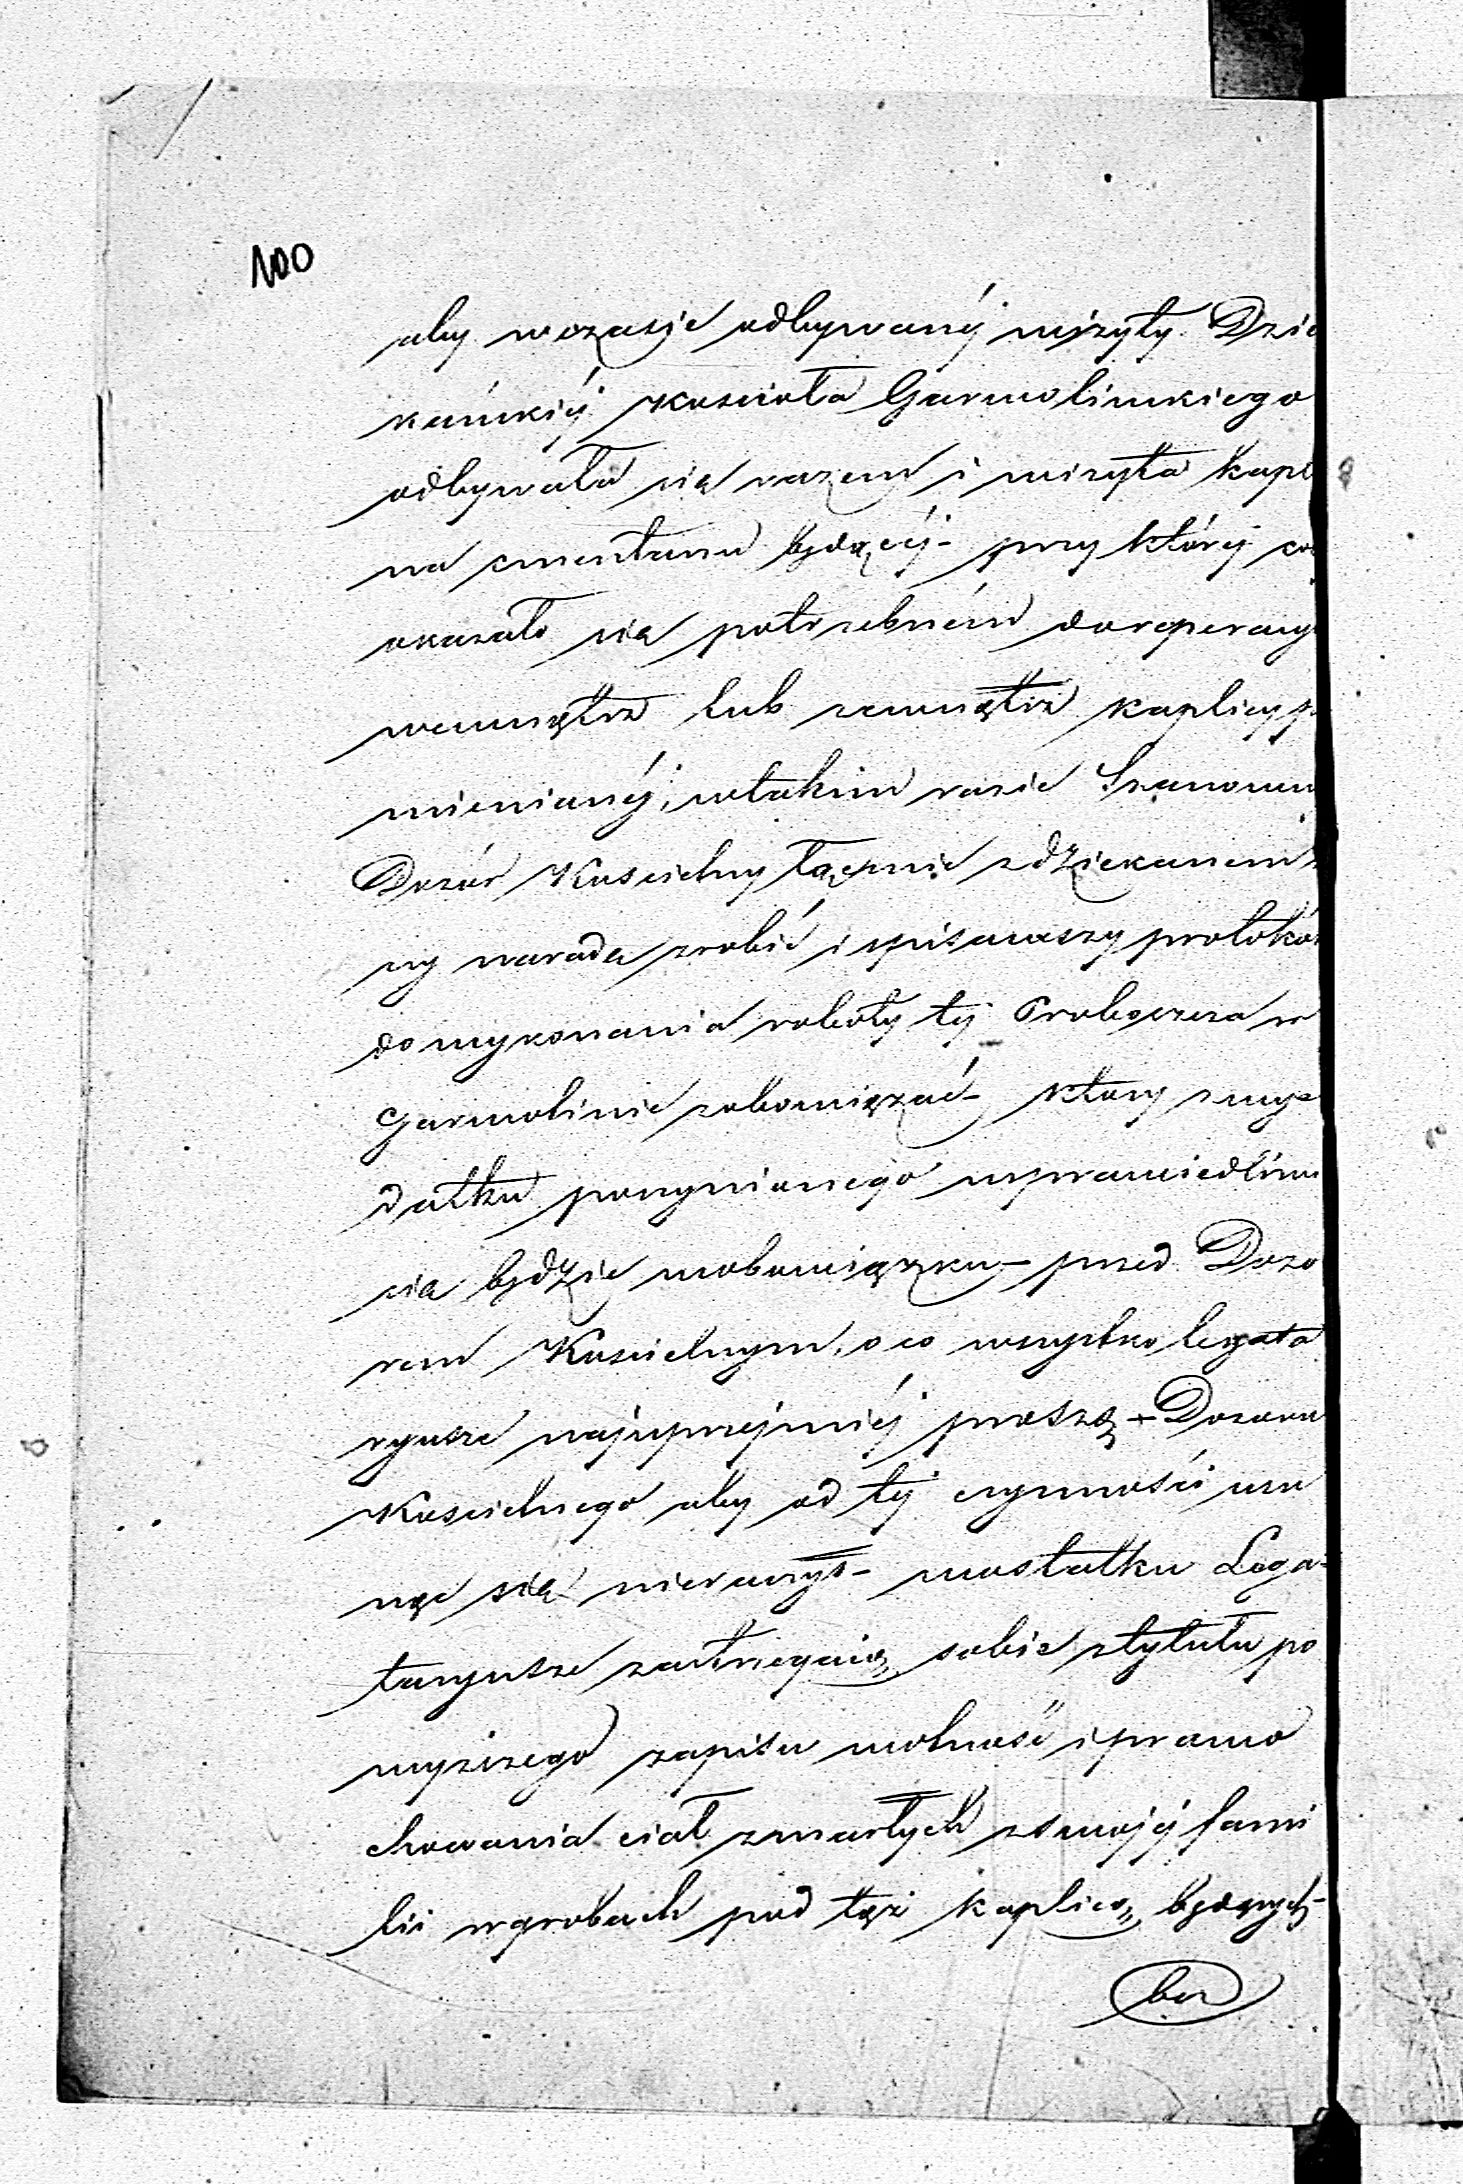 100
aby wczasie odbywanéj wizyty Dzie
kańskiéj Kościoła Garwolinskiego
odbywała się razem i wizyta Kapl
na cmentarzu będącéj – przy któréj co
okazało się potrzebném doreperacyi
wewnątrz lub zewnątrz kaplicy po
mienianéj, wtakim razie Szanowny
Dozór Kościelny łącznie zdziekanem
ny naradę zrobić i spisawszy protokół
do wykonania roboty téj Proboszcza w
Garwolinie zobowiązać – który zwy
datku poczynionego usprawiedliwi
się będzie wobowiązku – przed Dozo
rem Kościelnym, o co wszystko legata
ryusze najuprzejmiéj proszą – Dozoru
Kościelnego aby od téj czynności usu
nąc się nieraczył – wostatku Lega-
taryusze zastrzegaią sobie ztytułu po
wyższego zapisu wolność i prawo
chowania ciał zmarłych zswojéj fami
lii wgrobach pod tąż kaplicą będących –
bez